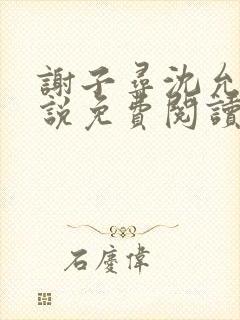 謝子尋沈允
說免費閱讀
石慶偉